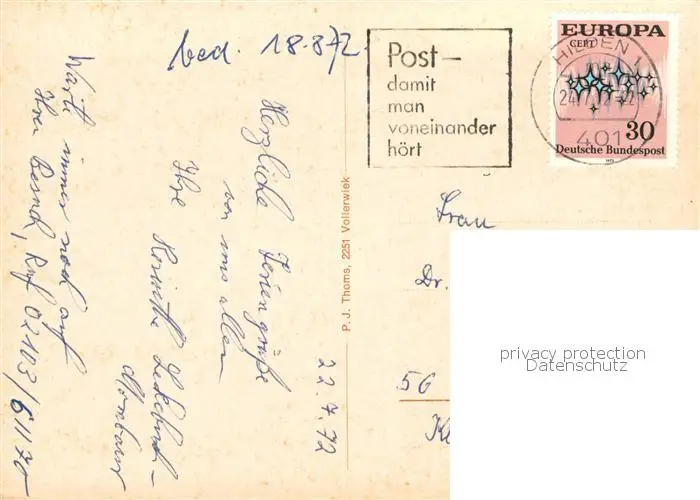 bed. 18.8.72.
Post-
damit
man
voneinander
hört
EUROPA
CEPT
HILDEN
401
30
Deutsche Bundespost
1972
22.7.72
Herzliche Feriengrüße
von uns allen
Ihre
Warte immer noch auf
Ihren Bernd, Ruf 02103/61170
P. J. Thoms, 2251 Vollerwiek
Frau
Dr.
56
privacy protection
Datenschutz